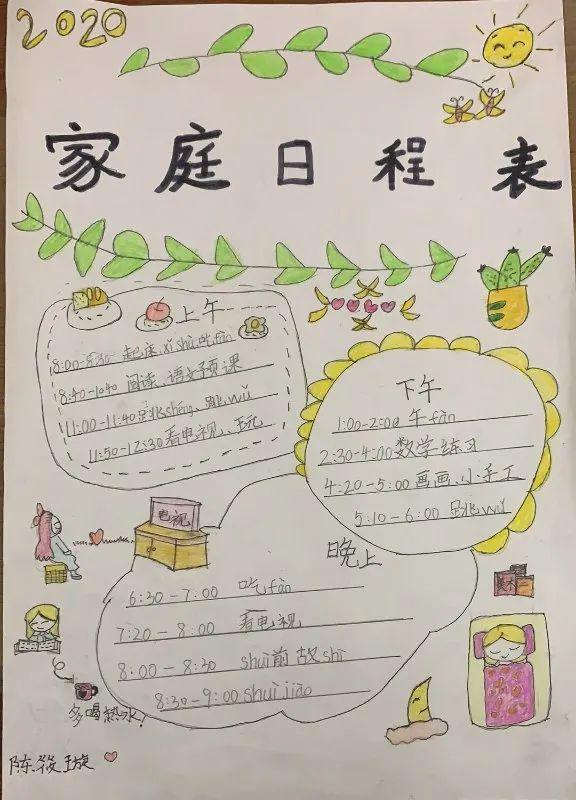 2020
家庭日程表
上午
8:00-8:30 起床、xǐ shù、吃fàn
8:40-10:40 阅读、语文预课
11:00-11:40 跳shéng、跳wǔ
11:50-12:30 看电视、玩
下午
1:00-2:00 午fàn
2:30-4:00 数学练习
4:20-5:00 画画、小手工
5:10-6:00 跳wǔ
电视
晚上
6:30-7:00 吃fàn
7:20-8:00 看电视
8:00-8:30 shuì前故shì
8:30-9:00 shuì jiào
多喝热水!
陈筱璇